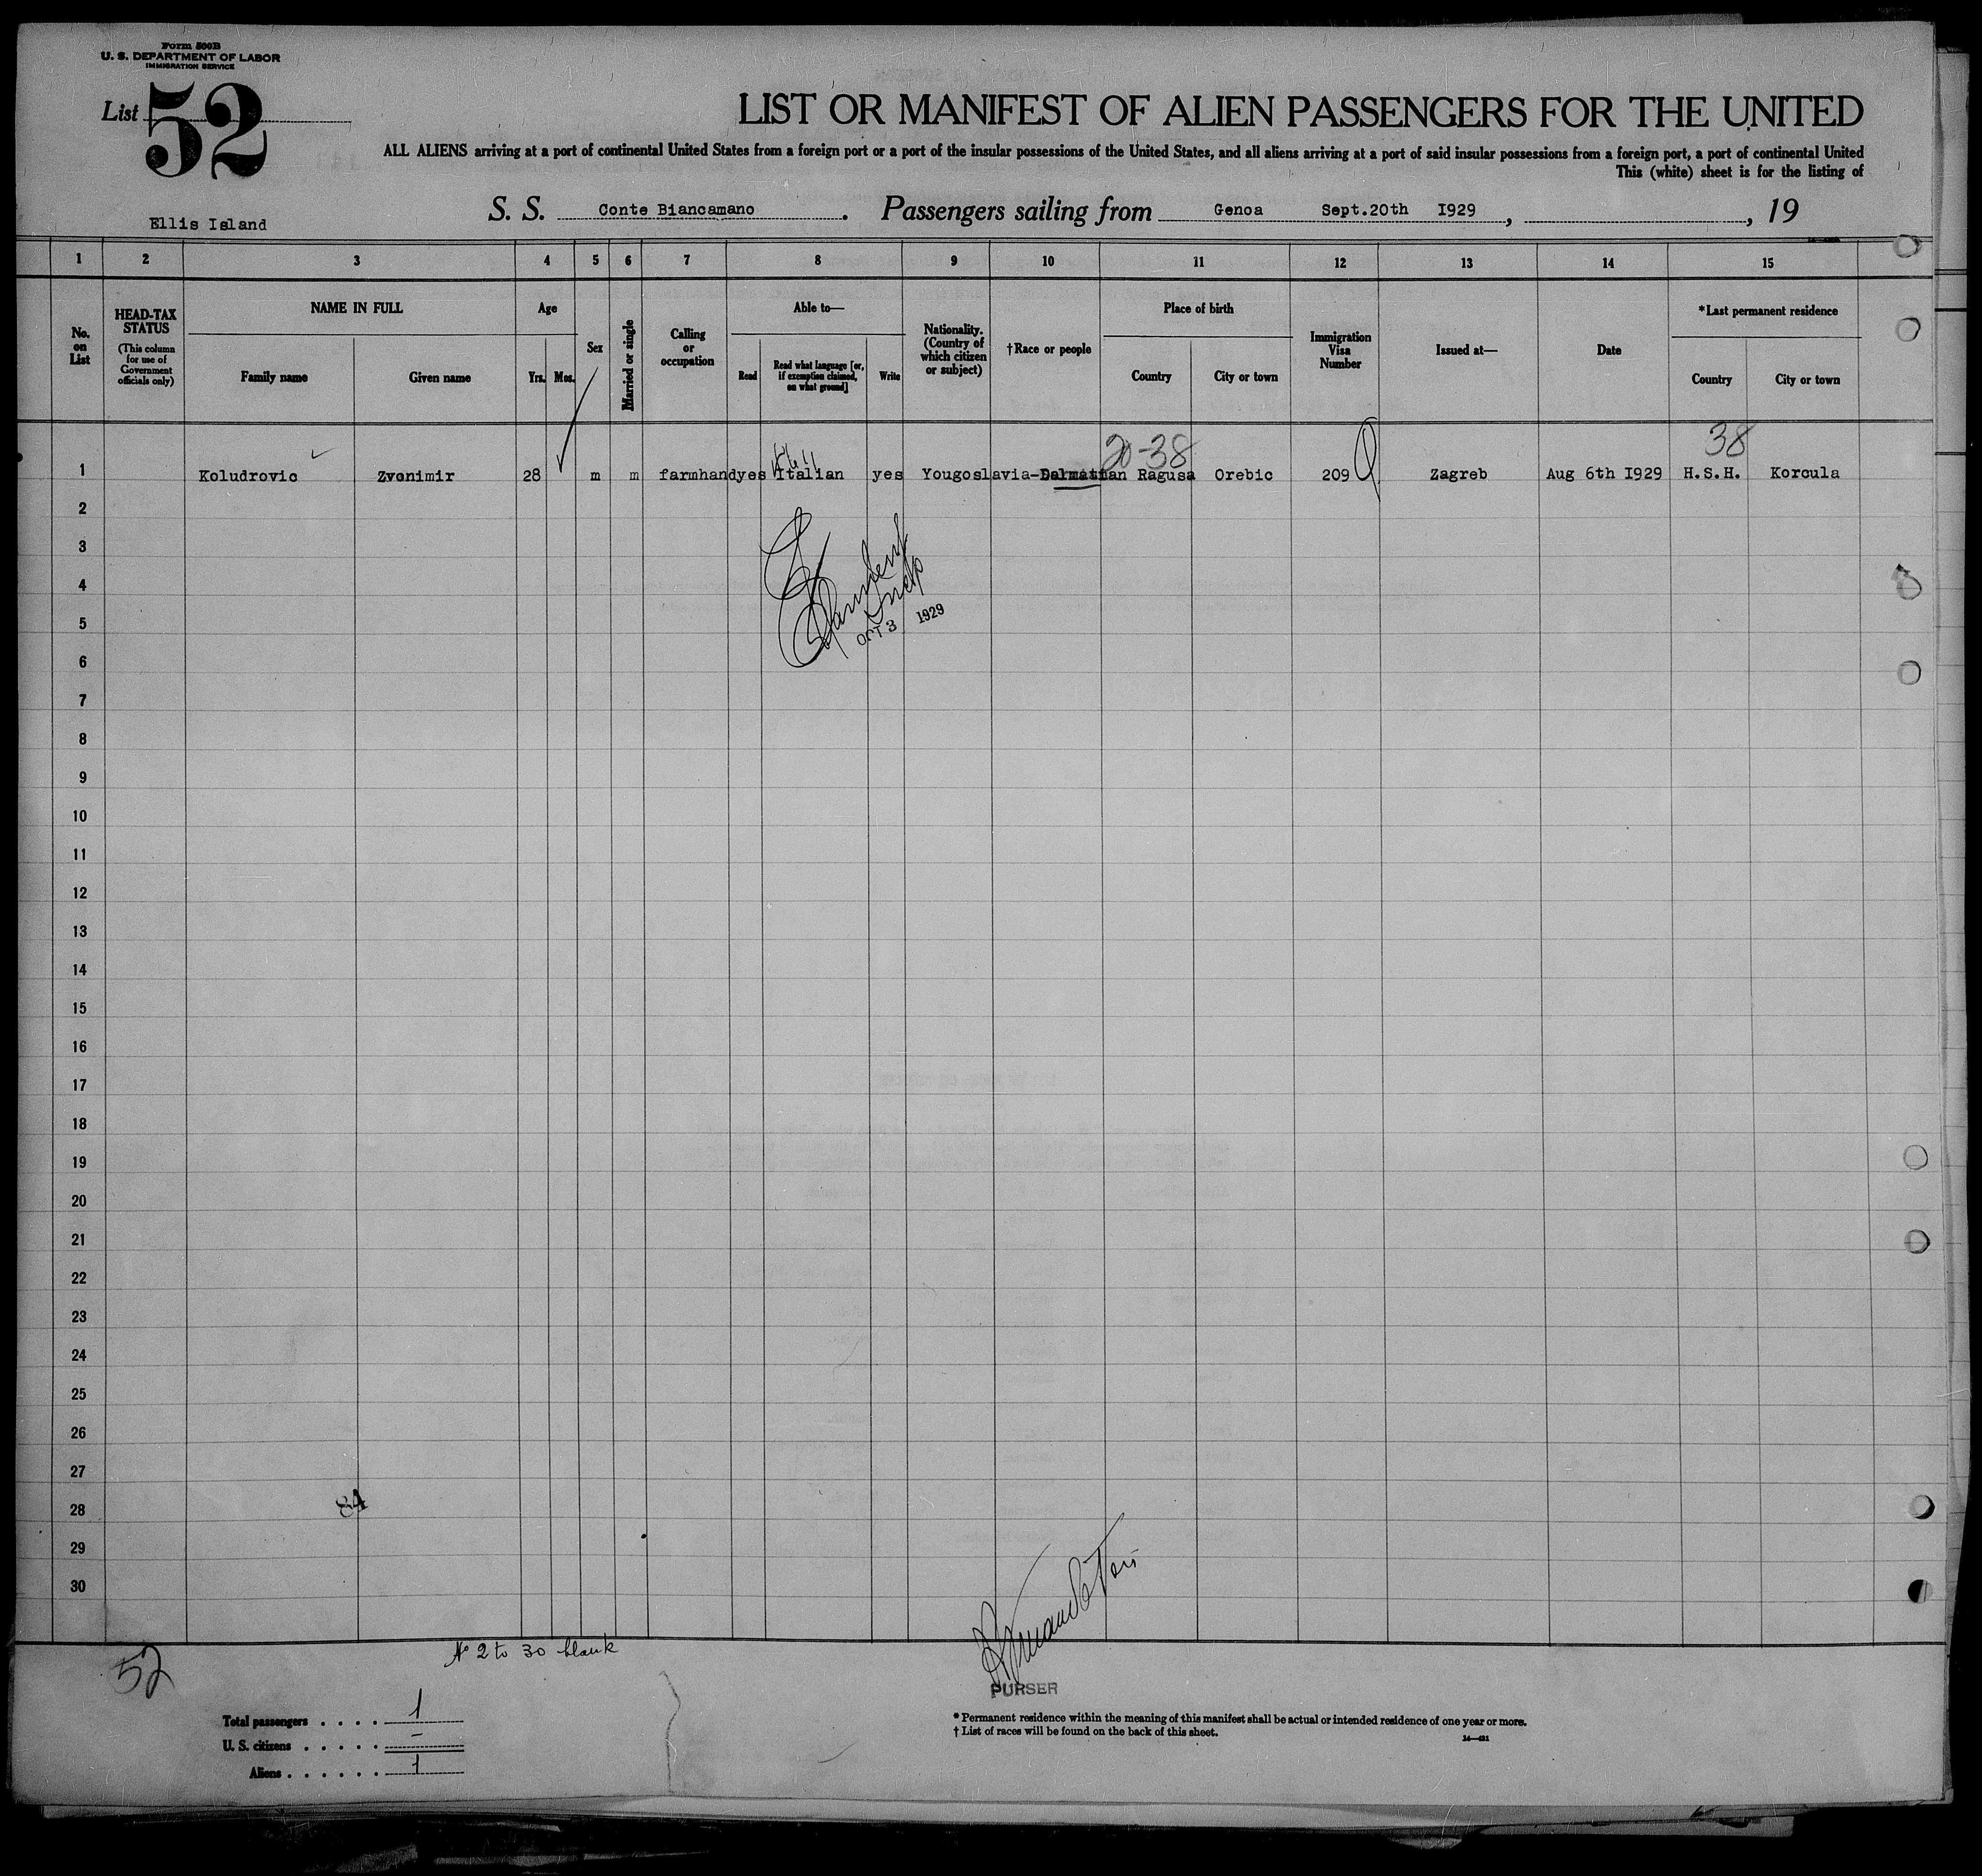 Form 500B
U. S. DEPARTMENT OF LABOR
IMMIGRATION SERVICE
List 52
LIST OR MANIFEST OF ALIEN PASSENGERS FOR THE UNITED
ALL ALIENS arriving at a port of continental United States from a foreign port or a port of the insular possessions of the United States, and all aliens arriving at a port of said insular possessions from a foreign port, a port of continental United
This (white) sheet is for the listing of
Ellis Island
S. S. Conte Biancamano. Passengers sailing from Genoa Sept.20th I929, , 19
1 2 3 4 5 6 7 8 9 10 11 12 13 14 15
No. on List
HEAD-TAX STATUS
(This column for use of Government officials only)
NAME IN FULL
Family name
Given name
Age
Yrs.
Mos.
Sex
Married or single
Calling or occupation
Able to—
Read
Read what language [or, if exemption claimed, on what ground]
Write
Nationality. (Country of which citizen or subject)
†Race or people
Place of birth
Country
City or town
Immigration Visa Number
Issued at—
Date
*Last permanent residence
Country
City or town
20-38
38
1 Koludrovic Zvonimir 28 m m farmhand yes Italian yes Yougoslavia-Dalmatian Ragusa Orebic 209 Zagreb Aug 6th I929 H.S.H. Korcula
2
3
4
5
OCT 3 1929
6
7
8
9
10
11
12
13
14
15
16
17
18
19
20
21
22
23
24
25
26
27
28
84
29
30
No 2 to 30 blank
52
PURSER
Total passengers . . . . 1
U. S. citizens . . . . . –
Aliens . . . . . . 1
* Permanent residence within the meaning of this manifest shall be actual or intended residence of one year or more.
† List of races will be found on the back of this sheet.
14—421